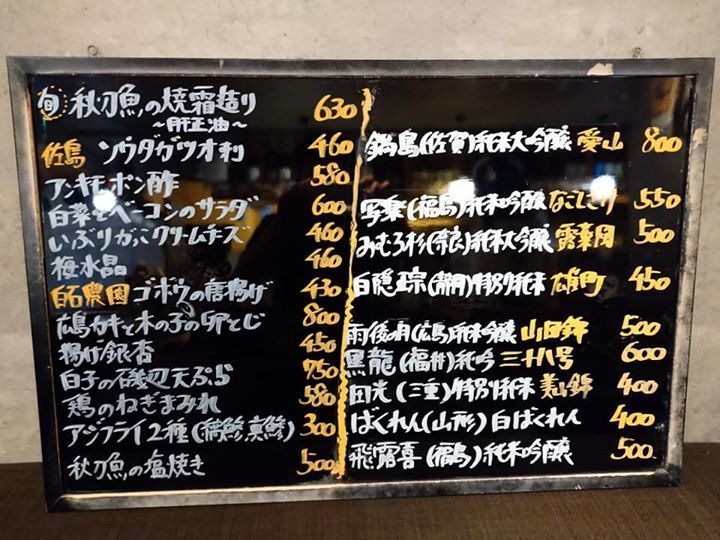 旬 秋刀魚の焼霜造り 630
～肝正油～
佐島 ソウダガツオ刺 460
アンキモポン酢 580
白菜とベーコンのサラダ 600
いぶりがっこクリームチーズ 460
梅水晶 460
白石農園 ゴボウの唐揚げ 430
広島カキと木の子の卵とじ 800
揚げ銀杏 450
白子の磯辺天ぷら 750
鶏のねぎまみれ 580
アジフライ2種(真鯵) 300
秋刀魚の塩焼き 500
鍋島(佐賀)純米大吟醸 愛山 800
写楽(福島)純米吟醸 なごしざけ 550
みむろ杉(奈良)純米大吟醸 露葉風 500
白隠正宗(静岡)特別純米 雄町 450
雨後の月(広島)純米吟醸 山田錦 500
黒龍(福井)純吟 三十八号 600
田光(三重)特別純米 美山錦 400
ばくれん(山形)白ばくれん 400
飛露喜(福島)純米吟醸 500